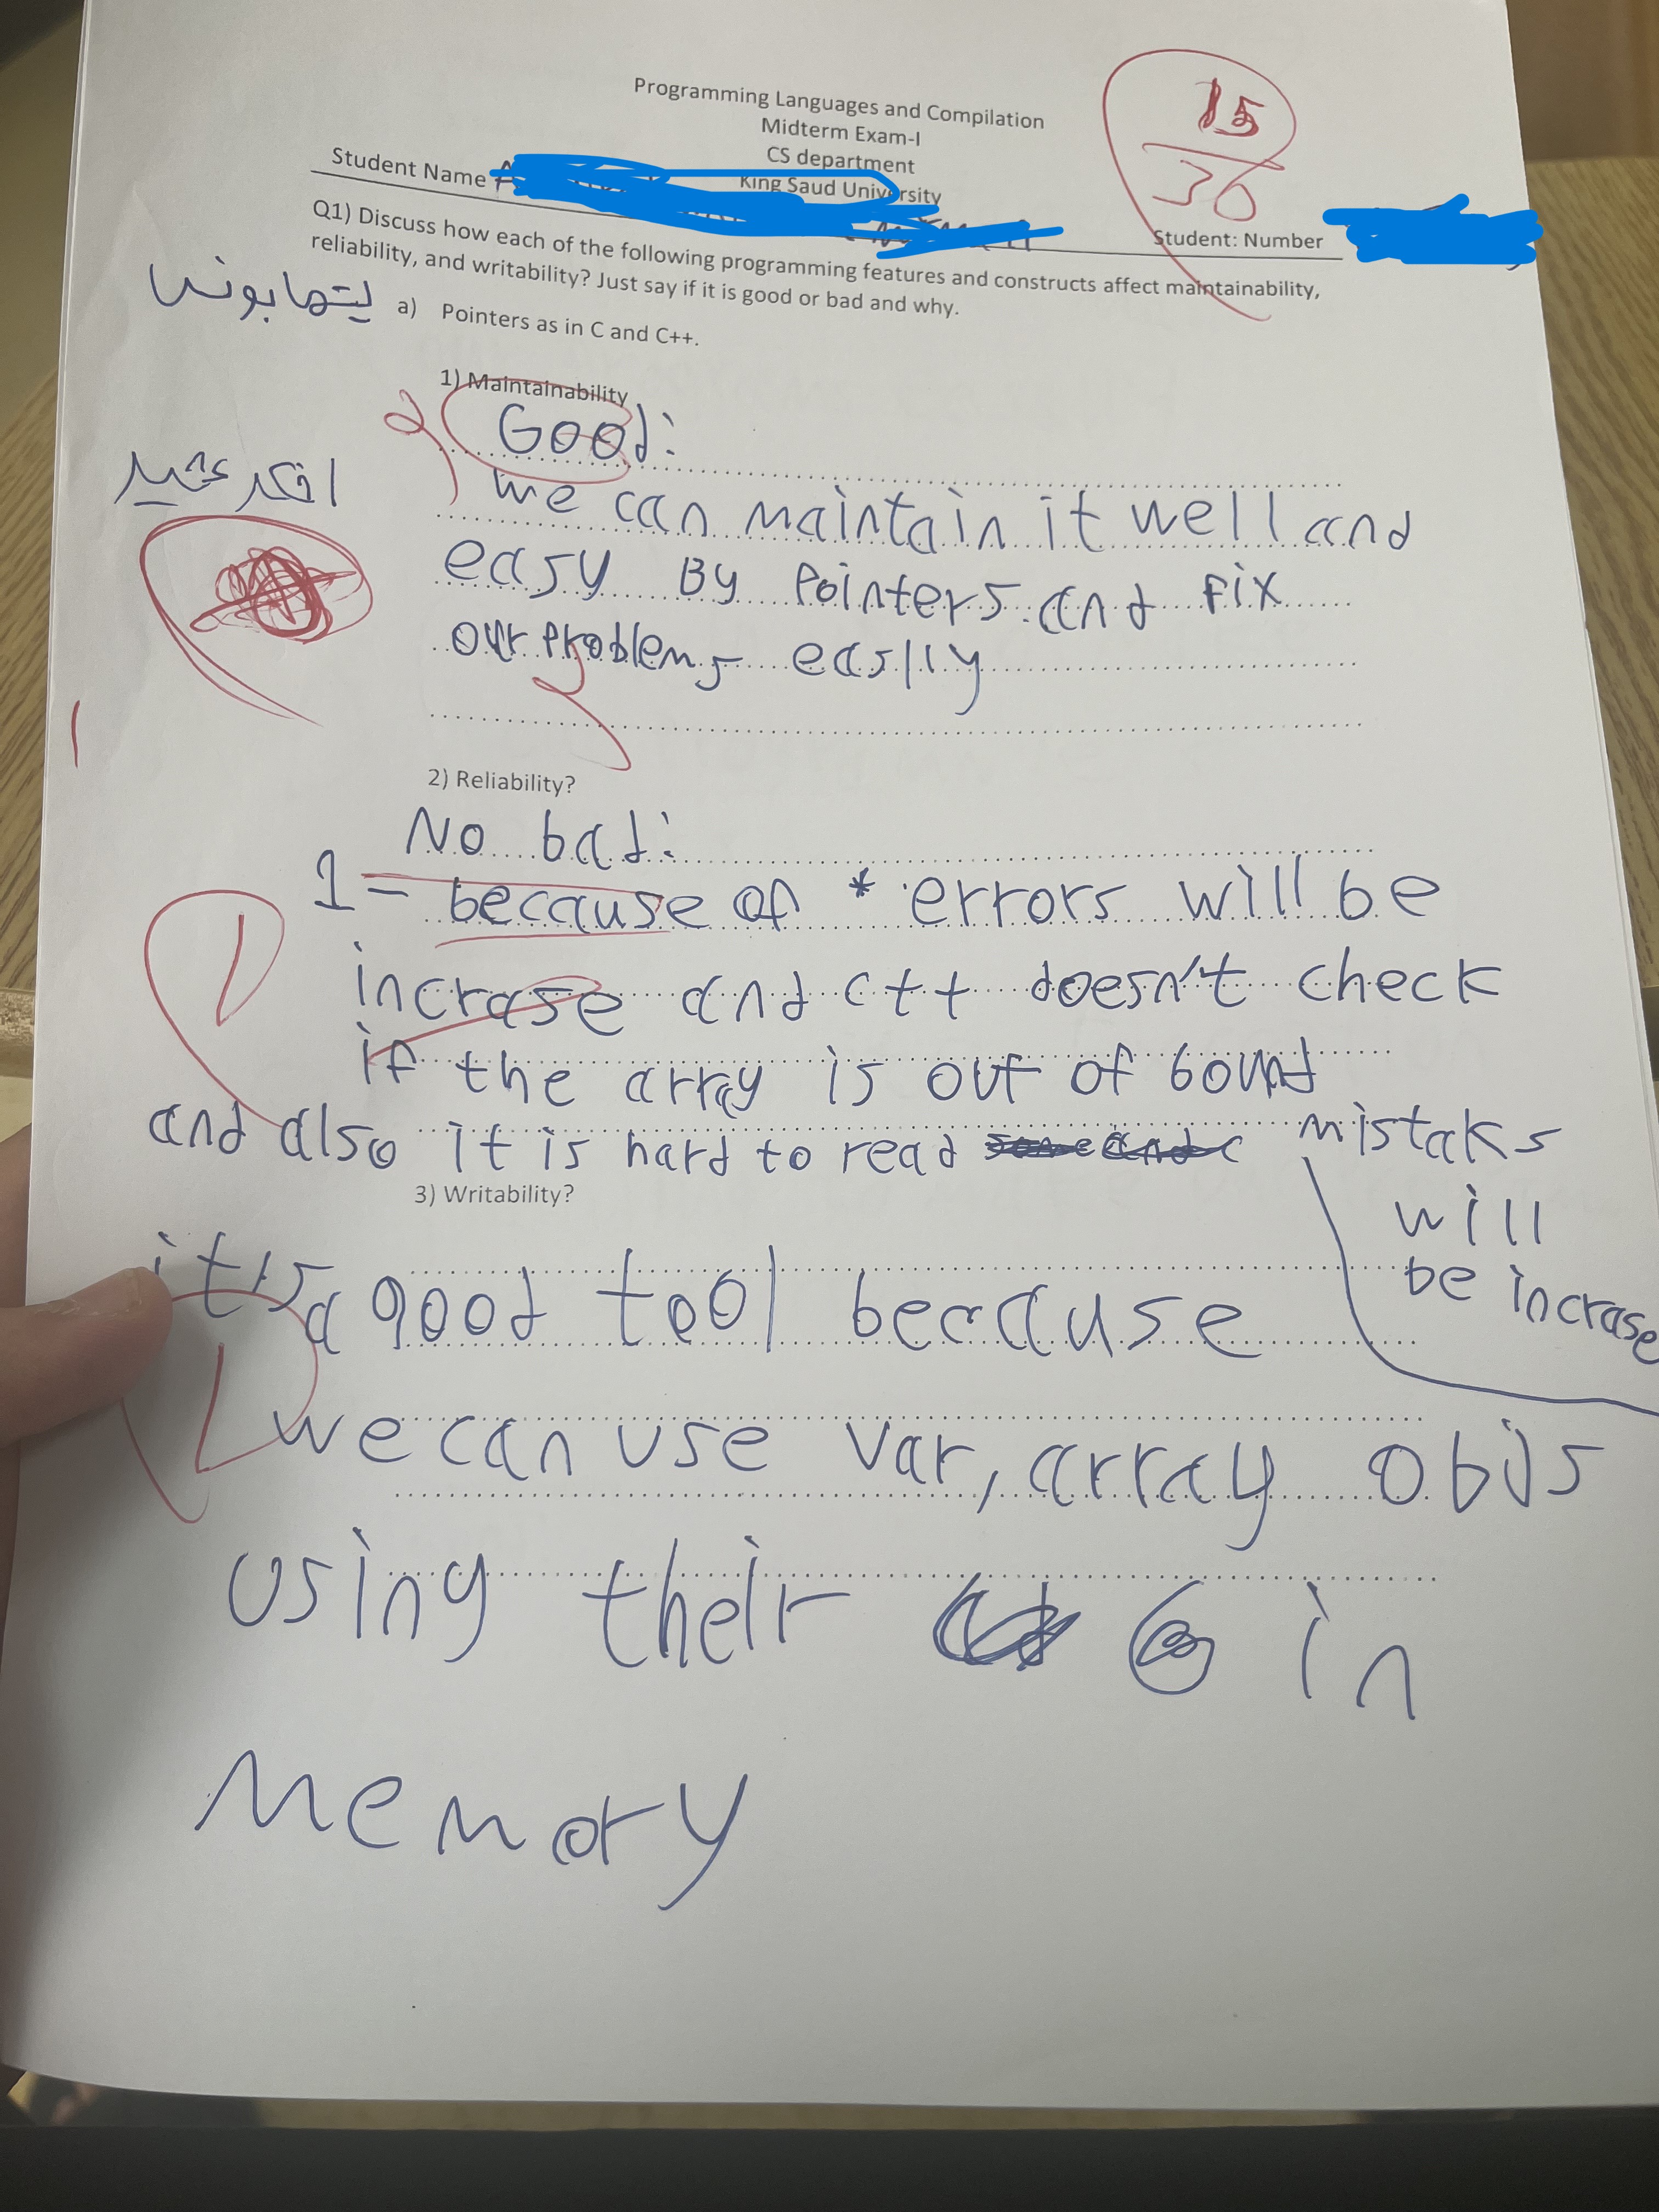 Programming Languages and Compilation
Midterm Exam-I
CS department
King Saud University
15
30
Student Name
Student: Number
Q1) Discuss how each of the following programming features and constructs affect maintainability,
reliability, and writability? Just say if it is good or bad and why.
a) Pointers as in C and C++.
1) Maintainability
Good:
we can maintain it well and
easy By Pointers and fix
our problems easlly
2) Reliability?
No bad:
1- because of * errors will be
incrase and c++ doesn't check
if the array is out of bound
and also it is hard to read mistaks
will
be incrase
3) Writability?
it's a good tool because
we can use var, array objs
using their in
Memory
1
1
1